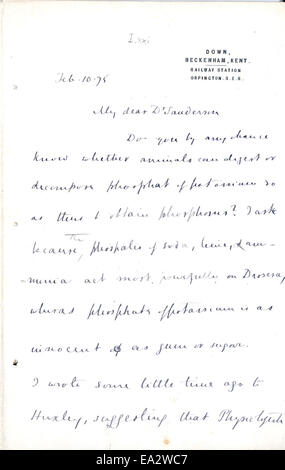 I.xxi
DOWN,
BECKENHAM, KENT.
RAILWAY STATION
ORPINGTON. S.E.R.
Feb. 10. 75
My dear Dr Sanderson
Do you by any chance
know whether animals can digest or
decompose phosphat of potassium so
as thus to obtain phosphorus? I ask
The
because, phosphates of soda, lime, & am-
monia act most powerfully on Drosera,
whereas phosphate of potassium is as
innocent as gum or sugar.
I wrote some little time ago to
Huxley, suggesting that Physiologists
alamy
Image ID: EA2WC7
www.alamy.com